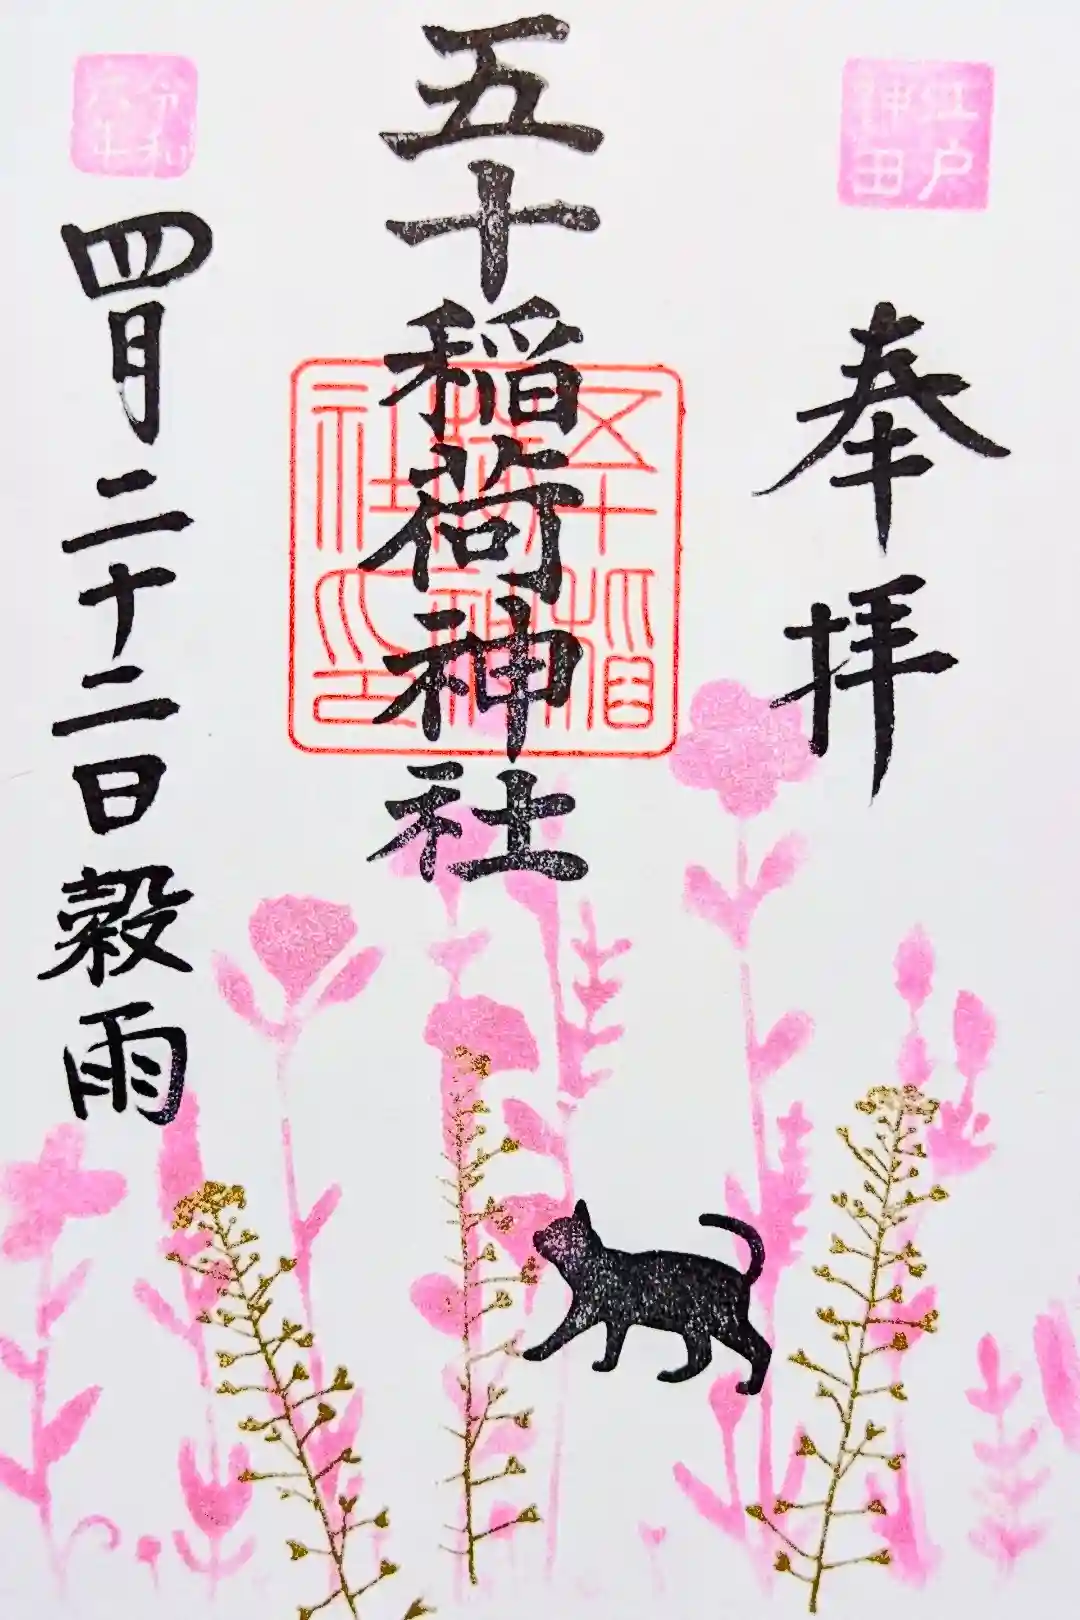 江戸
神田
奉拝
五十稲荷神社
五十稲
荷神
社印
令和
六年
四月二十二日穀雨